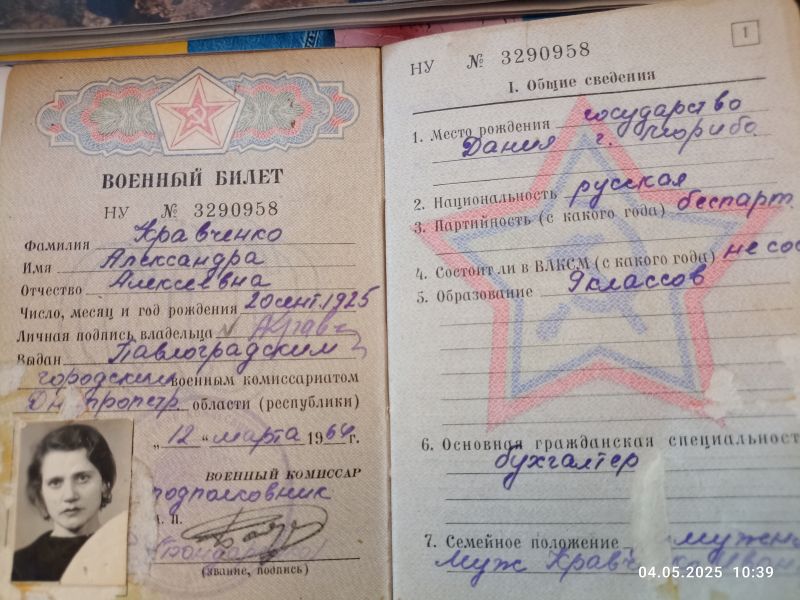 ВОЕННЫЙ БИЛЕТ
НУ № 3290958
Фамилия Кравченко
Имя Александра
Отчество Алексеевна
Число, месяц и год рождения 20 сент. 1925
Личная подпись владельца
Выдан Павлоградским
городским военным комиссариатом
Днепропетр. области (республики)
„12“ марта 1964 г.
ВОЕННЫЙ КОМИССАР
подполковник
М. П.
(звание, подпись)
1
НУ № 3290958
I. Общие сведения
1. Место рождения государство
Дания г.
2. Национальность русская
3. Партийность (с какого года) беспарт.
4. Состоит ли в ВЛКСМ (с какого года) не сос
5. Образование 9 классов
6. Основная гражданская специальност
бухгалтер
7. Семейное положение
Муж
04.05.2025 10:39